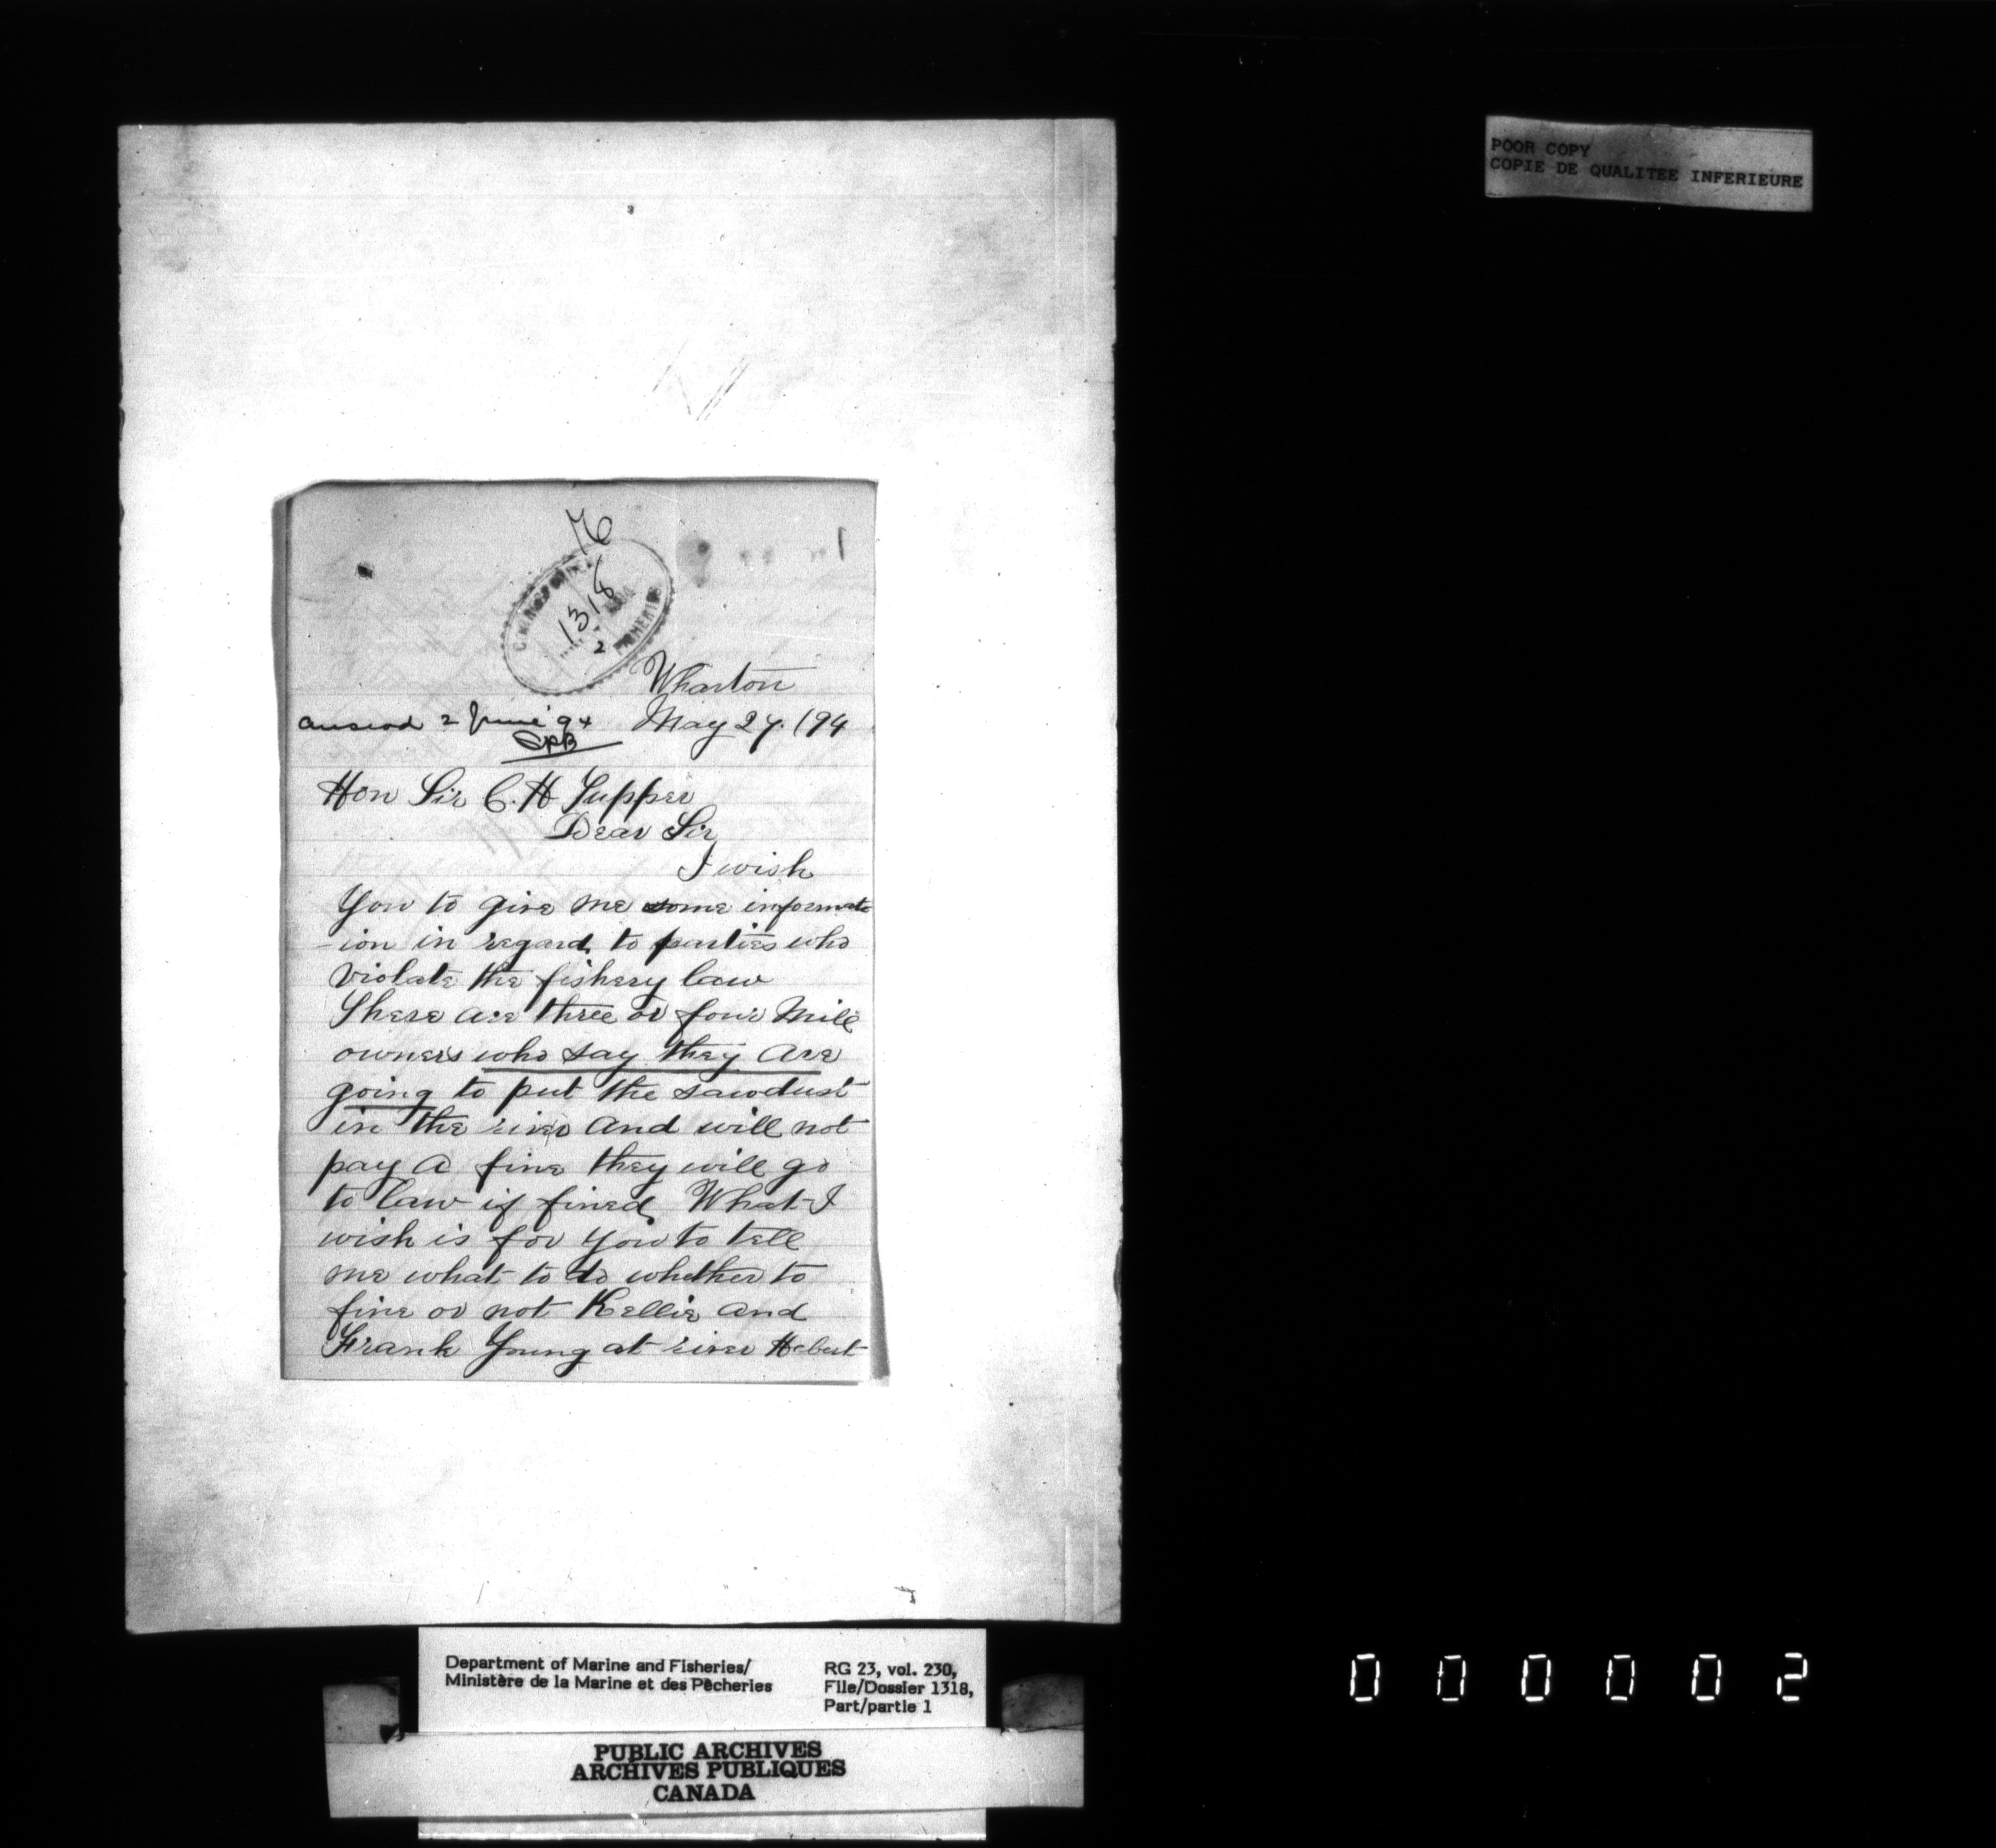 POOR COPY
COPIE DE QUALITEE INFERIEURE
1
1318
2
FISHERIES
Wharton
answd 2 June '94 May 27. 194
Hon Sir C. H Tupper
Dear Sir
I wish
You to give me some informat
-ion in regard to parties who
violate the fishery law
There are three or four Mill
owners who say they are
going to put the sawdust
in the river and will not
pay a fine they will go
to law if fined What I
wish is for you to tell
me what to do whether to
fine or not Kellie and
Frank Young at river Hebert
Department of Marine and Fisheries/
Ministère de la Marine et des Pêcheries
RG 23, vol. 230,
File/Dossier 1318,
Part/partie 1
PUBLIC ARCHIVES
ARCHIVES PUBLIQUES
CANADA
0 0 0 0 0 2